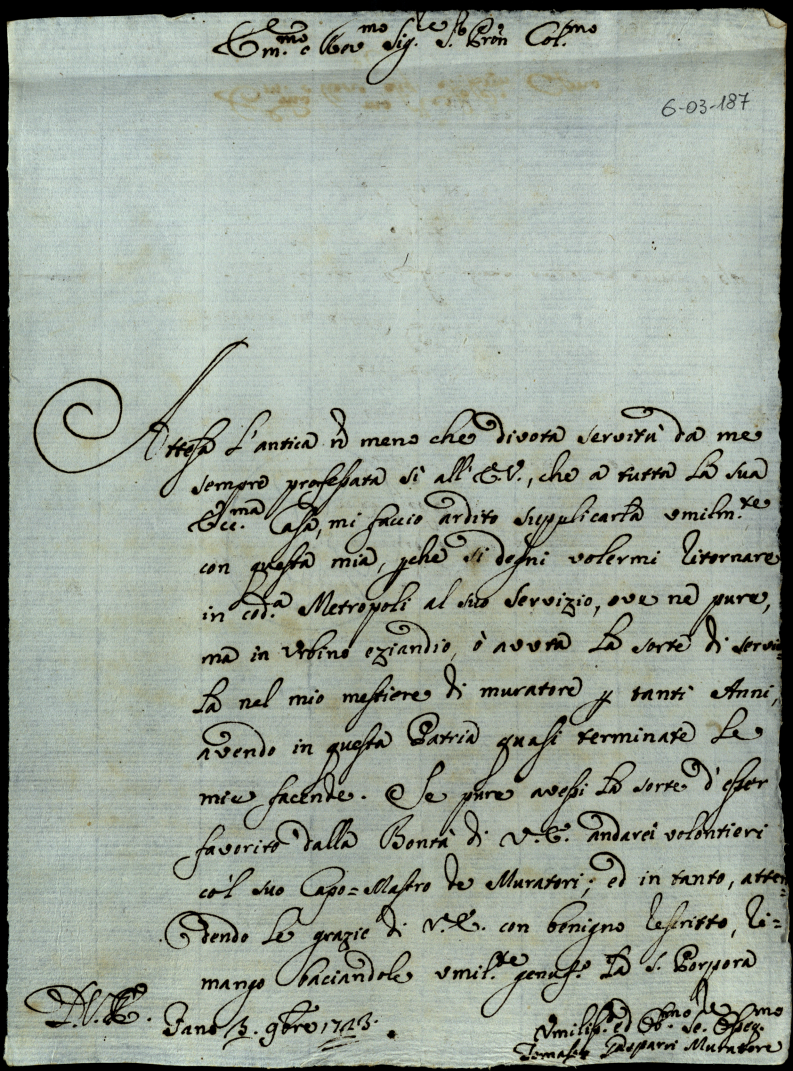 Em.mo e Rev.mo Sig.re S.r Pron Col.mo
6-03-187
Attesa l'antica ñ meno che divota servitù da me
sempre professata sì all'E.V., che a tutta la sua
Ecc.ma Casa, mi faccio ardito supplicarla umilm.te
con questa mia, pche si degni volermi ritornare
in cod.a Metropoli al suo servizio, ove nè pure,
ma in Urbino eziandio, ò avuta la sorte di servir
la nel mio mestiere di muratore p tanti Anni,
avendo in questa Patria quasi terminate le
mie facende. Se pure avessi la sorte d'esser
favorito dalla Bontà di V.E. andarei volontieri
co'l suo Capo=Mastro de Muratori; ed in tanto, atten=
dendo le grazie di V.E. con benigno rescritto, ri=
mango baciandole umil.te genufl. la S. Porpora
D.V.E.
Fano 3. 9bre 1723.
Umiliss.o ed Ob.mo Se.
Tomasso Gasparri Muratore